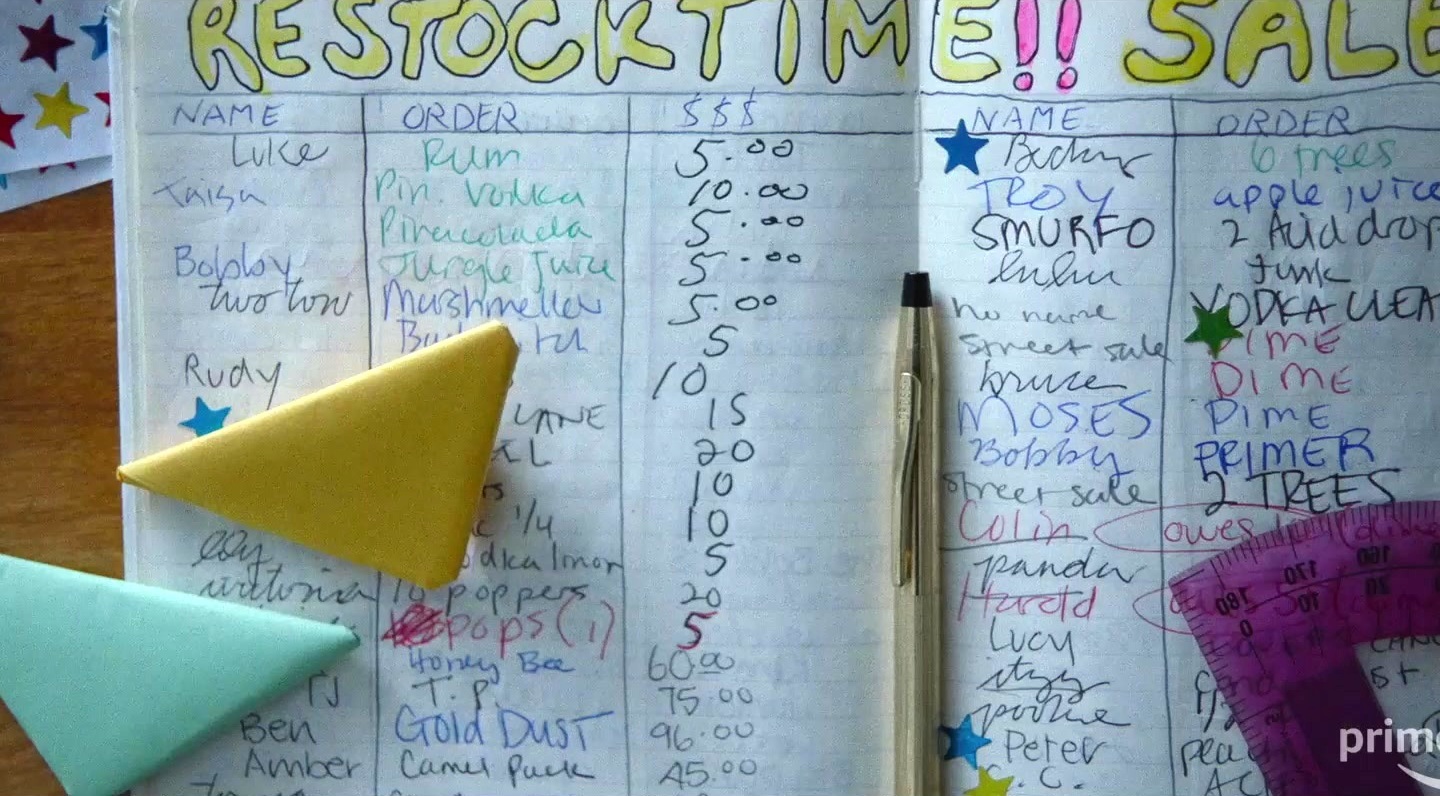 RESTOCK TIME!! SALE
NAME ORDER $$$
Luke Rum 5.00
Taisa Pin. Vodka 10.00
Pinacolada 5.00
Bobby Jungle Juice 5.00
two tow Marshmellow 5.00
5
Rudy 10
LANE 15
20
10
1/4 10
odka lmon 5
10 poppers 20
pops (1) 5
Honey Bee 60.00
TJ T.P. 75.00
Ben Gold Dust 96.00
Amber Camel Pack 45.00
NAME ORDER
Becky 6 trees
TROY apple juice
SMURFO 2 Acid drop
lulu funk
no name VODKA CLEA
street sale DIME
bruce DIME
MOSES DIME
Bobby PRIMER
street sale 2 TREES
Colin owes
panda
Harold
Lucy
itzy
pookie
Peter
C.
180
170
160
0
10
20
prime